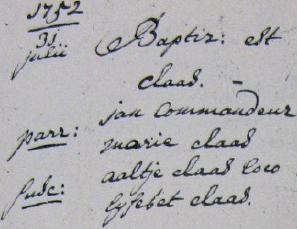 1752
31 Baptiz: est
julii
claas. -
jan Commandeur
parr: marie claas
aaltje claas loco
susc: lijsebet claas.